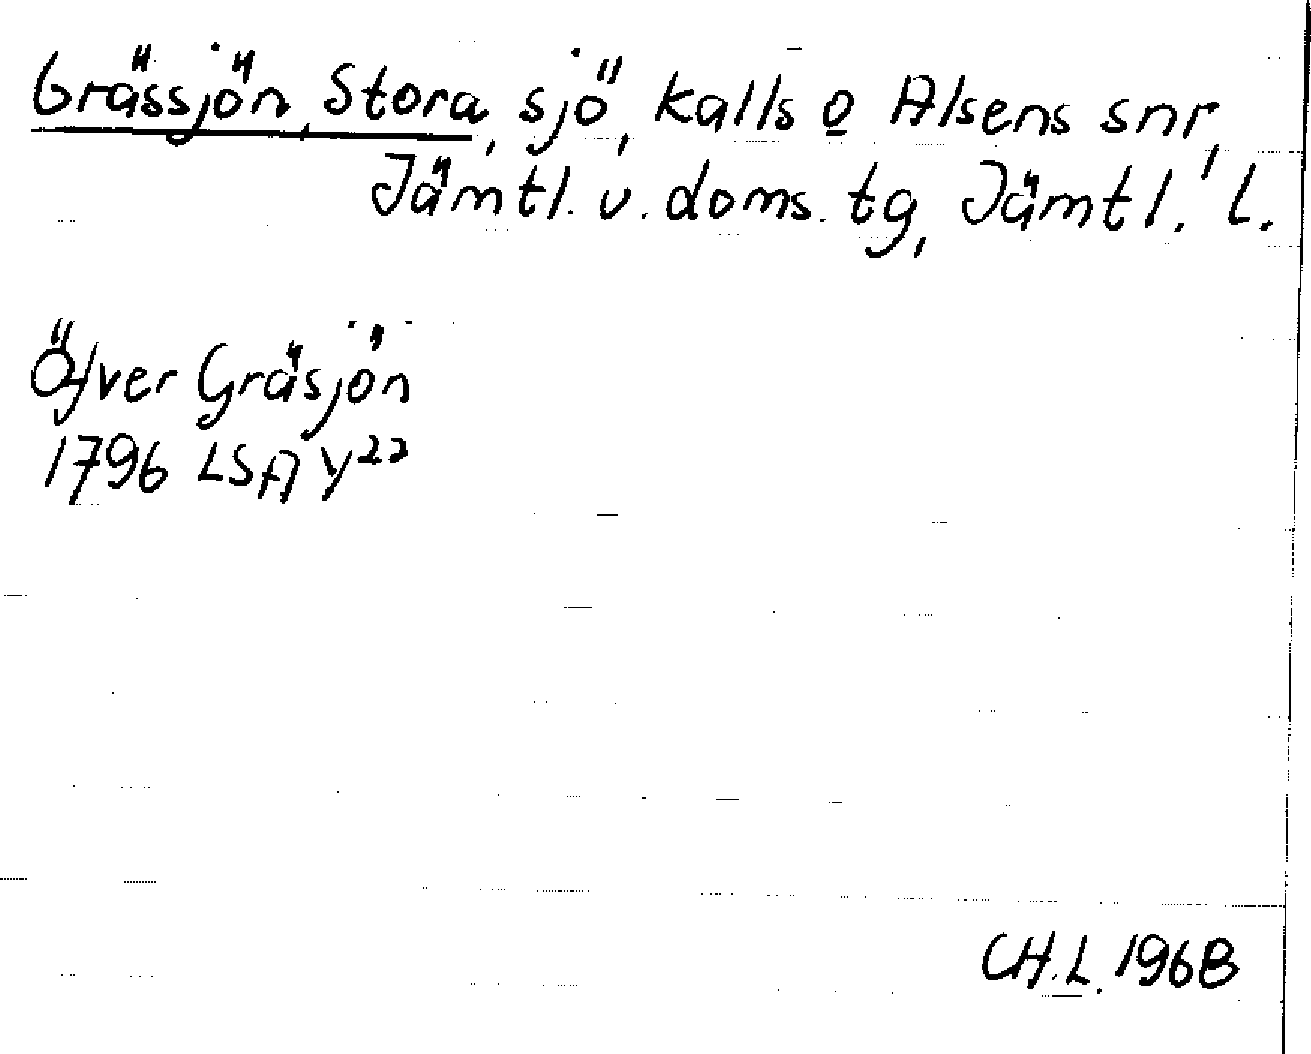 Grässjön, Stora, sjö, Kalls o Alsens snr,
Jämtl. v. doms. tg, Jämtl. l.
Öfver Gräsjön
1796 LSA Y22
CH.L. 1968